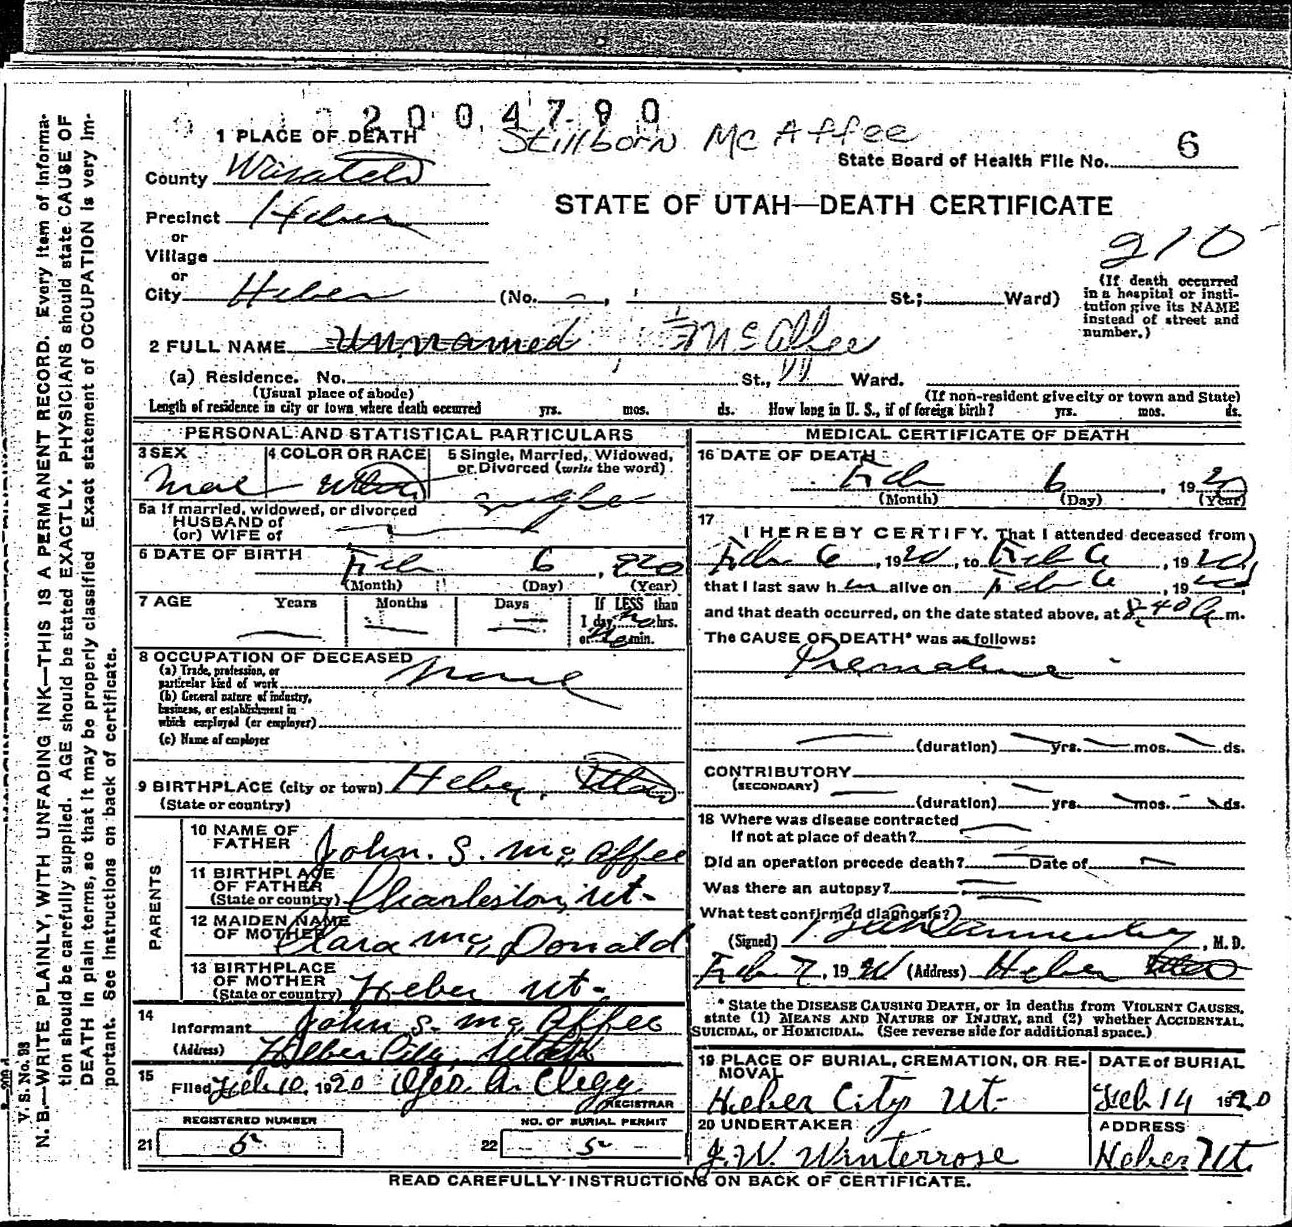 2004790
Stillborn McAffee
1 PLACE OF DEATH
State Board of Health File No. 6
County Wasatch
STATE OF UTAH—DEATH CERTIFICATE
Precinct Heber
or
Village
210
or
City Heber (No. —, St.; Ward)
(If death occurred in a hospital or institution give its NAME instead of street and number.)
2 FULL NAME Unnamed McAffee
(a) Residence. No. St., Ward.
(Usual place of abode) (If non-resident give city or town and State)
Length of residence in city or town where death occurred yrs. mos. ds. How long in U. S., if of foreign birth? yrs. mos. ds.
PERSONAL AND STATISTICAL PARTICULARS
3 SEX Male
4 COLOR OR RACE White
5 Single, Married, Widowed, or Divorced (write the word) Single
5a If married, widowed, or divorced
HUSBAND of
(or) WIFE of
6 DATE OF BIRTH Feb 6, 920
(Month) (Day) (Year)
7 AGE Years Months Days If LESS than
1 day, hrs.
or min.
8 OCCUPATION OF DECEASED None
(a) Trade, profession, or
particular kind of work
(b) General nature of industry,
business, or establishment in
which employed (or employer)
(c) Name of employer
9 BIRTHPLACE (city or town) Heber, Utah
(State or country)
PARENTS
10 NAME OF FATHER John. S. McAffee
11 BIRTHPLACE OF FATHER (State or country) Charleston, Ut-
12 MAIDEN NAME OF MOTHER Clara McDonald
13 BIRTHPLACE OF MOTHER (State or country) Heber Ut-
14
Informant John S. McAffee
(Address) Heber City, Utah
15
Filed Feb 10, 1920 Geo. A. Clegg
REGISTRAR
REGISTERED NUMBER NO. OF BURIAL PERMIT
21 5 22 5
MEDICAL CERTIFICATE OF DEATH
16 DATE OF DEATH
Feb 6, 1920
(Month) (Day) (Year)
17
I HEREBY CERTIFY, That I attended deceased from
Feb 6, 1920, to Feb 6, 1920,
that I last saw him alive on Feb 6, 1920,
and that death occurred, on the date stated above, at 8:40 a m.
The CAUSE OF DEATH* was as follows:
Premature
(duration) yrs. mos. ds.
CONTRIBUTORY
(SECONDARY)
(duration) yrs. mos. ds.
18 Where was disease contracted
If not at place of death?
Did an operation precede death? Date of
Was there an autopsy?
What test confirmed diagnosis?
(Signed) , M. D.
Feb 7, 1920 (Address) Heber Utah
* State the DISEASE CAUSING DEATH, or in deaths from VIOLENT CAUSES,
state (1) MEANS AND NATURE OF INJURY, and (2) whether ACCIDENTAL,
SUICIDAL, or HOMICIDAL. (See reverse side for additional space.)
19 PLACE OF BURIAL, CREMATION, OR REMOVAL
Heber City Ut-
DATE of BURIAL
Feb 14 1920
20 UNDERTAKER
J. W. Winterrose
ADDRESS
Heber Ut.
READ CAREFULLY INSTRUCTIONS ON BACK OF CERTIFICATE.
V. S. No. 98
N. B.—WRITE PLAINLY, WITH UNFADING INK—THIS IS A PERMANENT RECORD. Every item of informa-
tion should be carefully supplied. AGE should be stated EXACTLY. PHYSICIANS should state CAUSE OF
DEATH in plain terms, so that it may be properly classified. Exact statement of OCCUPATION is very im-
portant. See instructions on back of certificate.